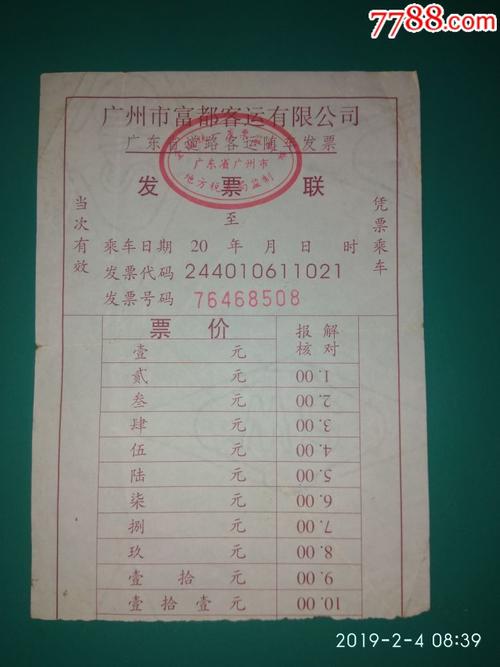 7788.com
中国收藏热线
广州市富都客运有限公司
广东省道路客运随车发票
广东省广州市
地方税务局监制
发票联
至
当次有效
凭票乘车
乘车日期 20 年 月 日 时
发票代码 244010611021
发票号码 76468508
票价 报解
壹 元 核对
贰 元 1.00
叁 元 2.00
肆 元 3.00
伍 元 4.00
陆 元 5.00
柒 元 6.00
捌 元 7.00
玖 元 8.00
壹拾 元 9.00
壹拾壹 元 10.00
2019-2-4 08:39